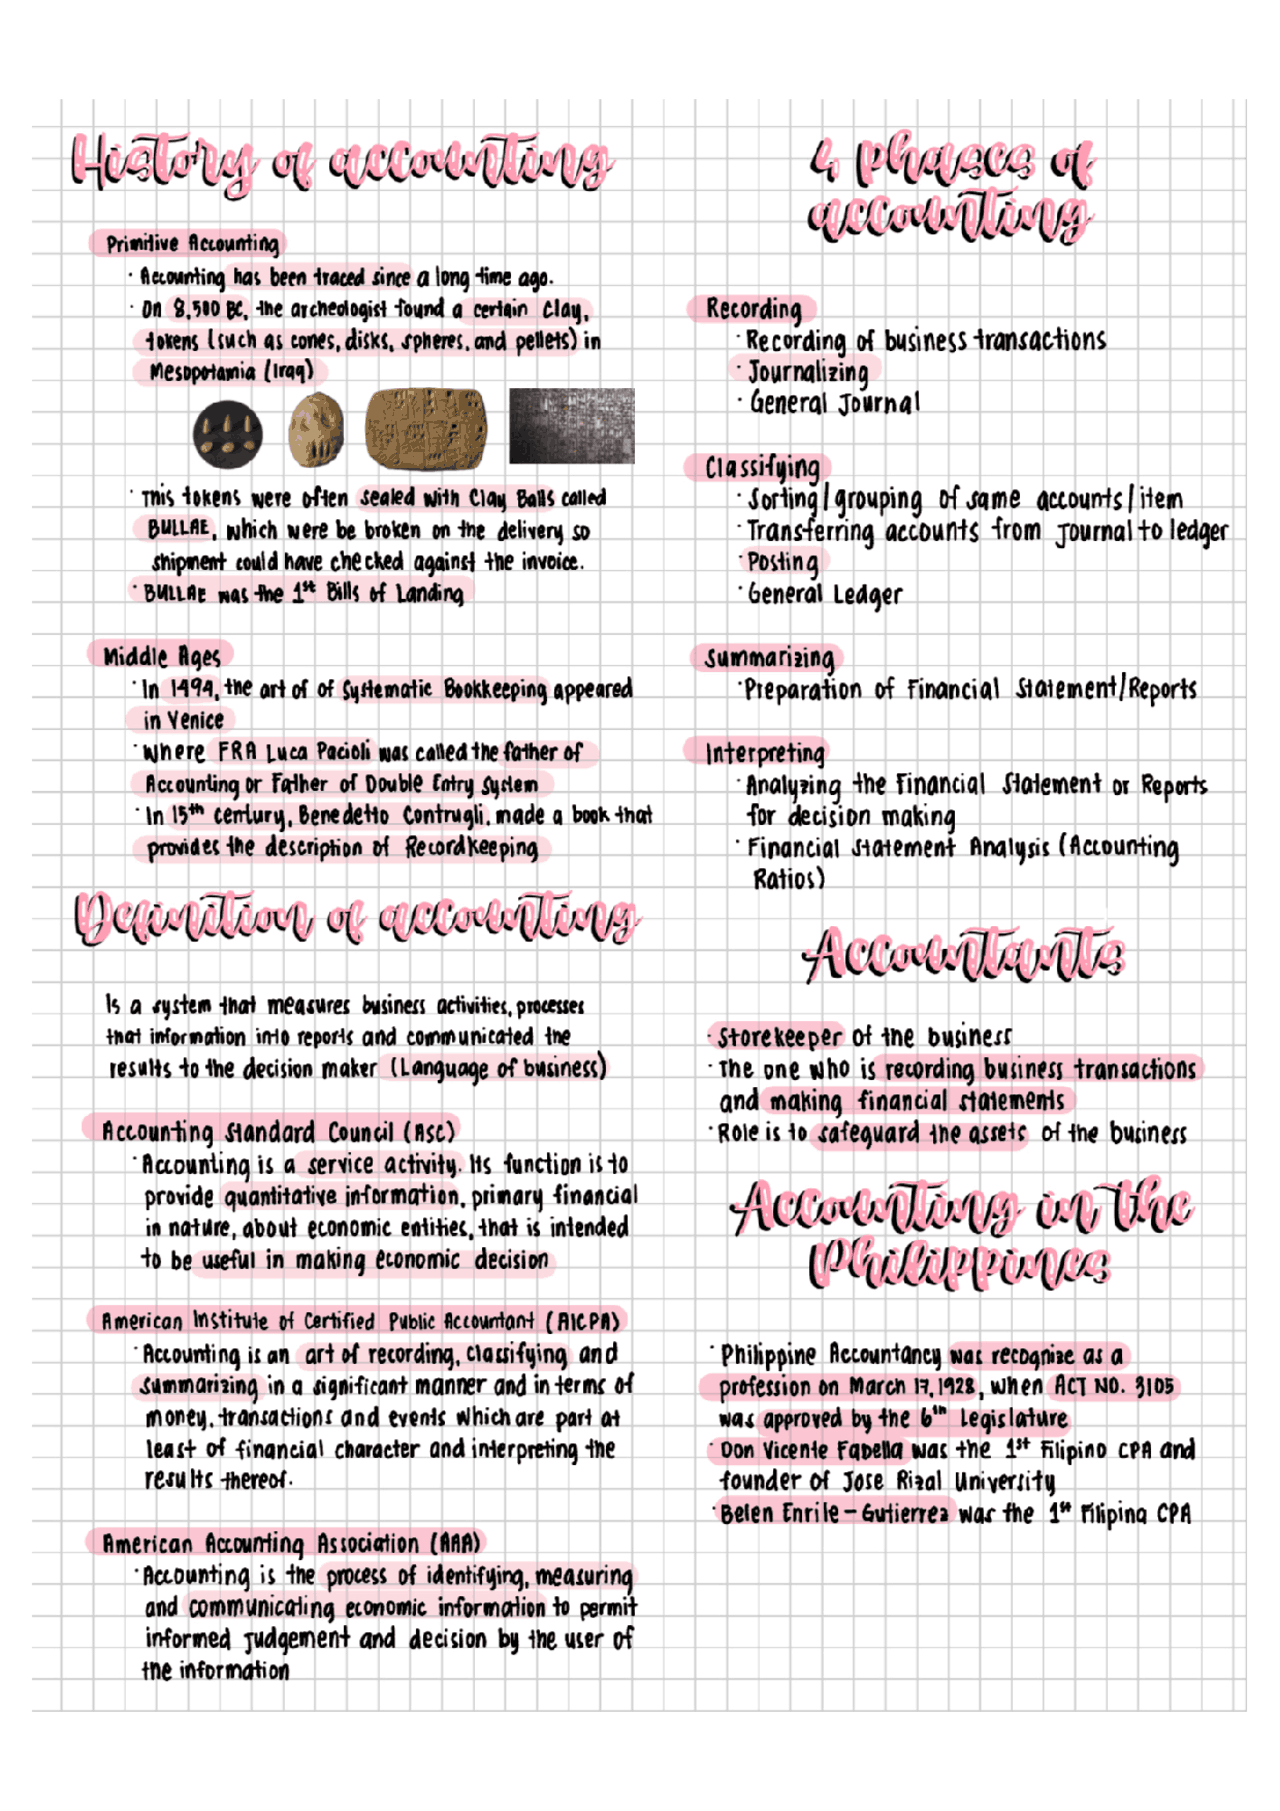 History of accounting
Primitive Accounting
· Accounting has been traced since a long time ago.
· On 8,500 BC, the archeologist found a certain clay,
tokens (such as cones, disks, spheres, and pellets) in
Mesopotamia (Iraq)
· This tokens were often sealed with Clay Balls called
BULLAE, which were be broken on the delivery so
shipment could have checked against the invoice.
· BULLAE was the 1st Bills of Landing
Middle Ages
· In 1494, the art of of Systematic Bookkeeping appeared
in Venice
· where FRA Luca Pacioli was called the father of
Accounting or Father of Double Entry System
· In 15th century, Benedetto Contrugli, made a book that
provides the description of Recordkeeping
Definition of accounting
Is a system that measures business activities, processes
that information into reports and communicated the
results to the decision maker (Language of business)
Accounting Standard Council (ASC)
· Accounting is a service activity. Its function is to
provide quantitative information, primary financial
in nature, about economic entities, that is intended
to be useful in making economic decision
American Institute of Certified Public Accountant (AICPA)
· Accounting is an art of recording, classifying and
summarizing in a significant manner and in terms of
money, transactions and events which are part at
least of financial character and interpreting the
results thereof.
American Accounting Association (AAA)
· Accounting is the process of identifying, measuring
and communicating economic information to permit
informed judgement and decision by the user of
the information
4 phases of
accounting
Recording
· Recording of business transactions
· Journalizing
· General Journal
Classifying
· Sorting/grouping of same accounts/item
· Transferring accounts from journal to ledger
· Posting
· General Ledger
Summarizing
· Preparation of Financial Statement/Reports
Interpreting
· Analyzing the Financial Statement or Reports
for decision making
· Financial Statement Analysis (Accounting
Ratios)
Accountants
· Storekeeper of the business
· The one who is recording business transactions
and making financial statements
· Role is to safeguard the assets of the business
Accounting in the
Philippines
· Philippine Accountancy was recognize as a
profession on March 17, 1928, when ACT NO. 3105
was approved by the 6th Legislature
· Don Vicente Fabella was the 1st Filipino CPA and
founder of Jose Rizal University
· Belen Enrile-Gutierrez was the 1st Filipina CPA